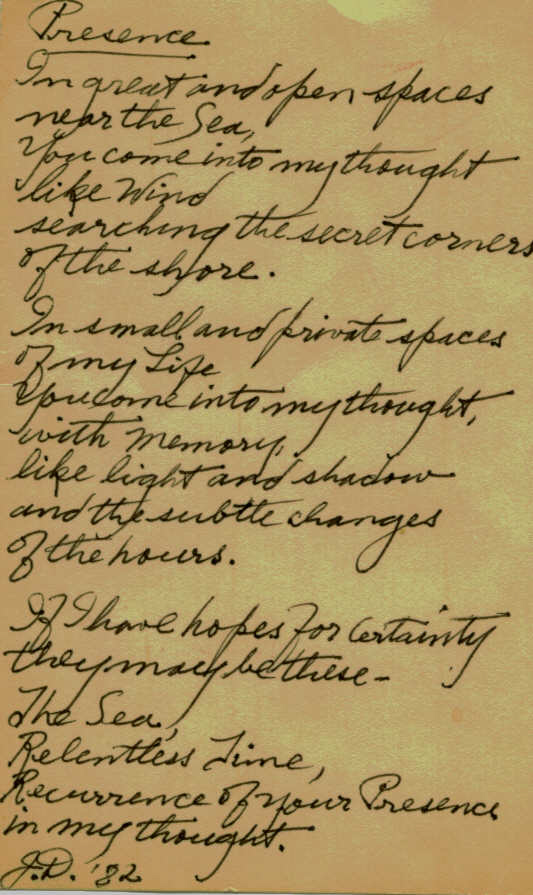 Presence
In great and open spaces
near the Sea,
You come into my thought
like Wind
searching the secret corners
of the shore.
In small and private spaces
of my Life
You come into my thought,
with memory,
like light and shadow
and the subtle changes
Of the hours.
If I have hopes for Certainty
they may be these-
The Sea,
Relentless Time,
Recurrence of your Presence
in my thought.
J.D. '82